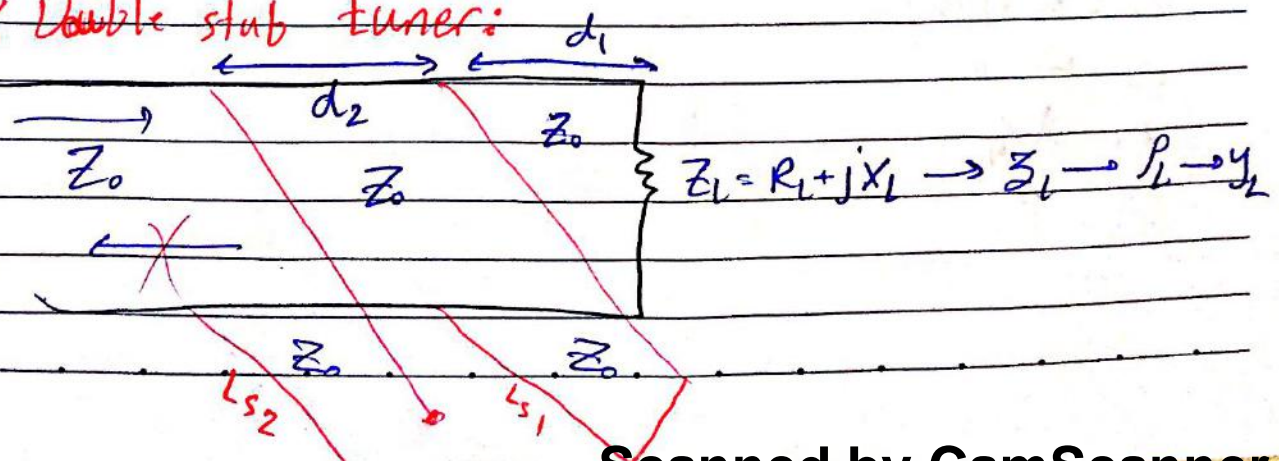 Double stub tuner:
d₁
d₂
Z₀
Z₀
Z₀
Z_L = R_L + jX_L → z_L → ρ_L → y_L
Z₀
Z₀
L_S₂
L_S₁
Scanned by CamScanner